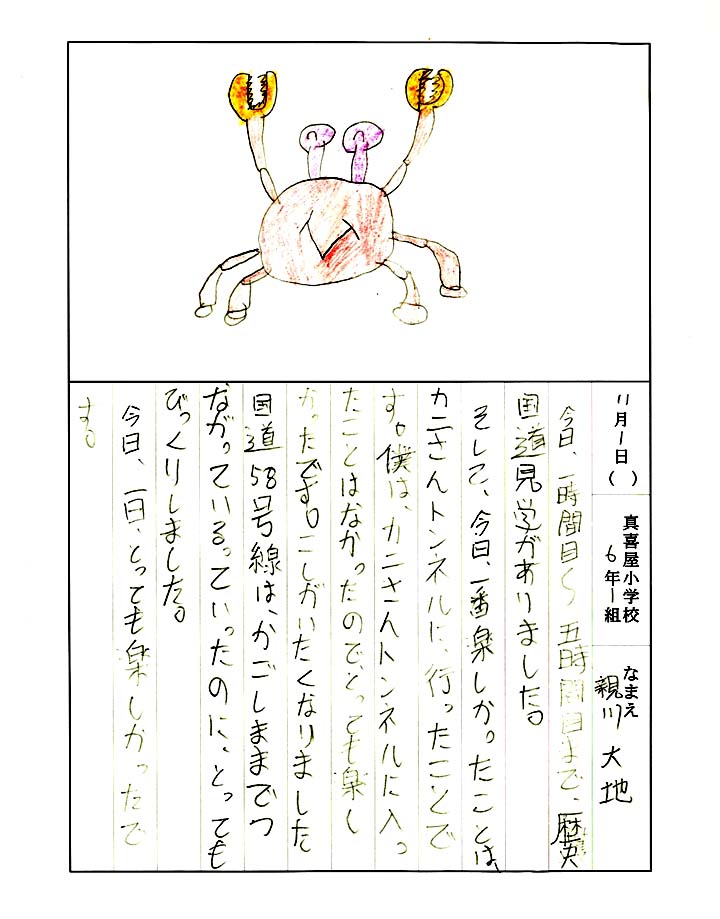 11月1日( )
真喜屋小学校
6年1組
なまえ
親川 大地
今日、一時間目〜五時間目まで、歴史
国道見学がありました。
そして、今日、一番楽しかったことは、
カニさんトンネルに、行ったことで
す。僕は、カニさんトンネルに入っ
たことはなかったので、とっても楽し
かったです。こしがいたくなりました
国道58号線は、かごしままでつ
ながっているっていったのに、とっても
びっくりしました。
今日、一日、とっても楽しかったで
す。